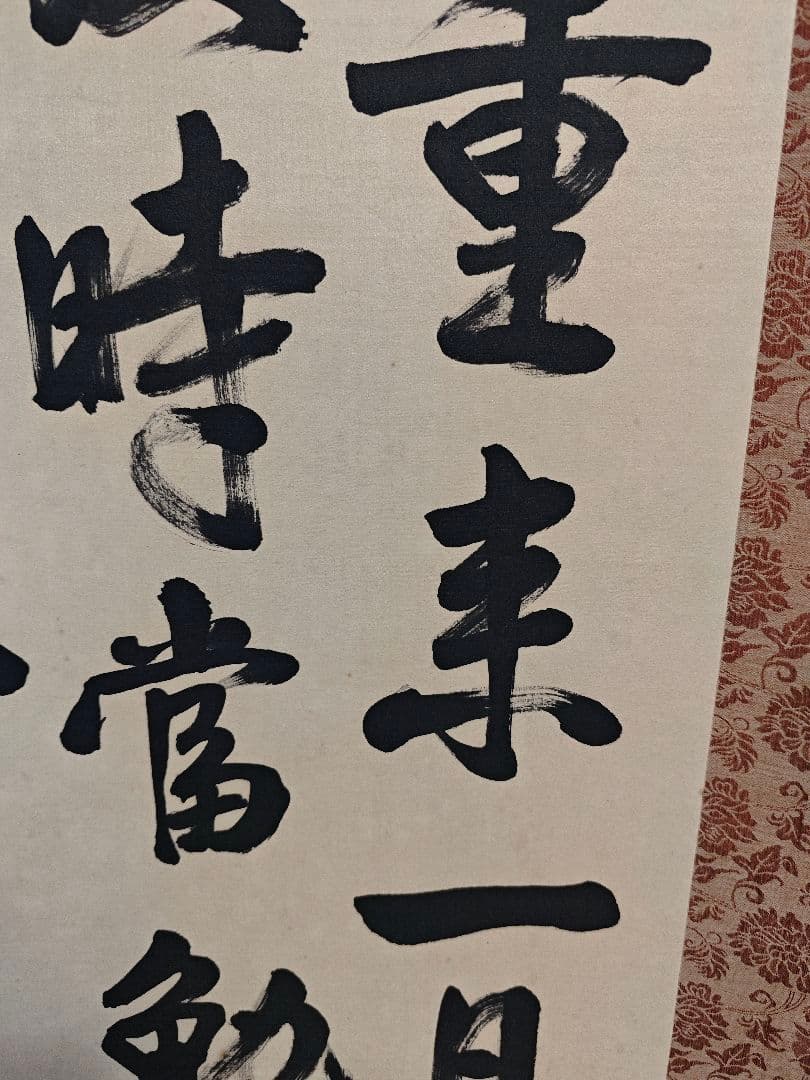 重来一日
時當勉